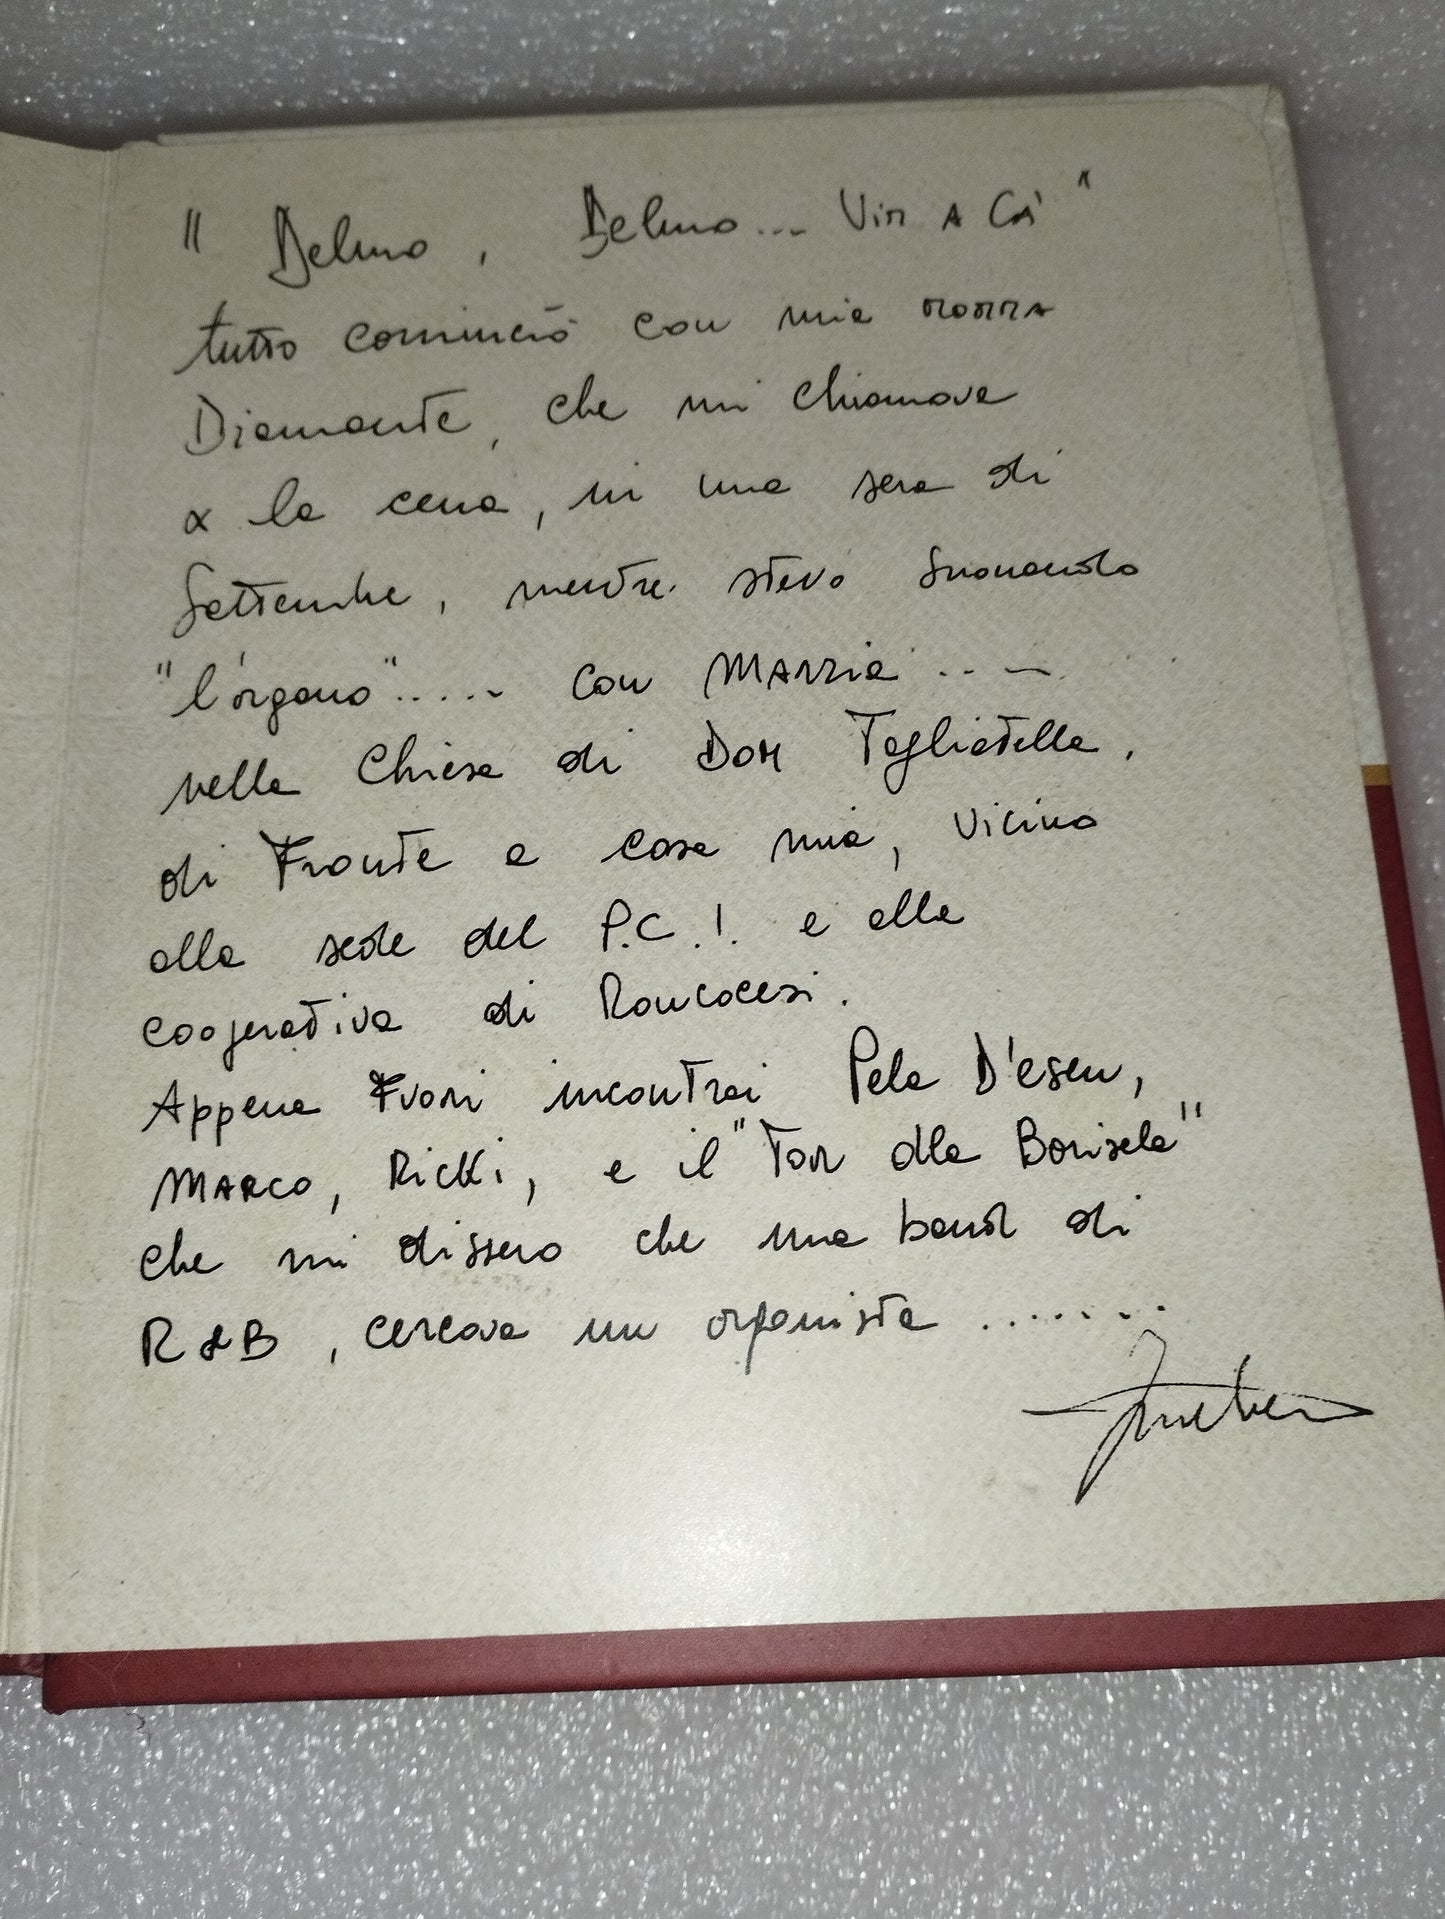 "Delmo, Delmo... Vin a Cà"
tutto cominciò con mia nonna
Diamante, che mi chiamava
x la cena, in una sera di
Settembre, mentre stavo suonando
"l'órgano"..... con Marzia.....
nella Chiesa di Don Tagliatella,
di Fronte a casa mia, vicino
alla sede del P.C.I. e alla
cooperativa di Roncocesi.
Appena Fuori incontrai Pela D'esen,
Marco, Ricki, e il "Tor dla Borisela"
che mi dissero che una band di
R&B, cercava un organista ........
Zucchero